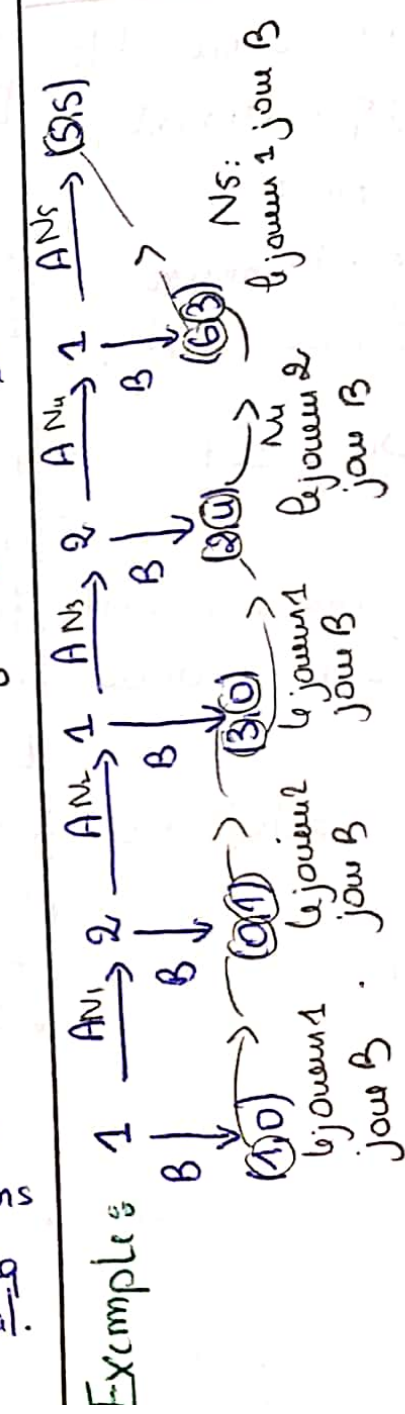 Exemple :
1 A N1 2 A N2 1 A N3 2 A N4 1 A N5 (5,5)
B B B B B
(1,0) (0,1) (3,0) (2,4) (6,3)
le joueur 1 joue B.
le joueur 2 joue B
le joueur 1 joue B
N4 le joueur 2 joue B
N5: le joueur 1 joue B